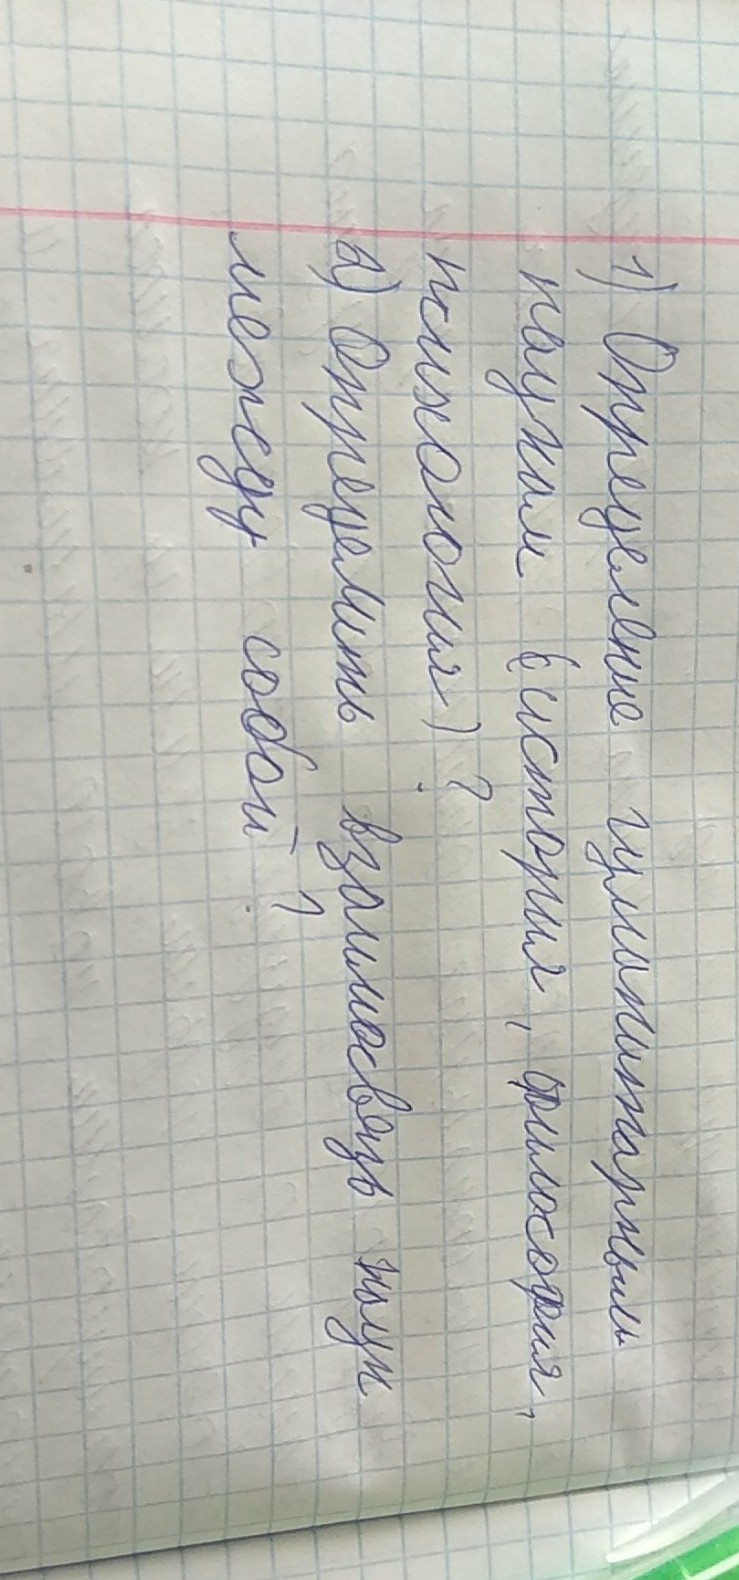 1) Определение гуманитарным
наукам (история, философия,
психология)?
2) Определить взаимосвязь наук
между собой?